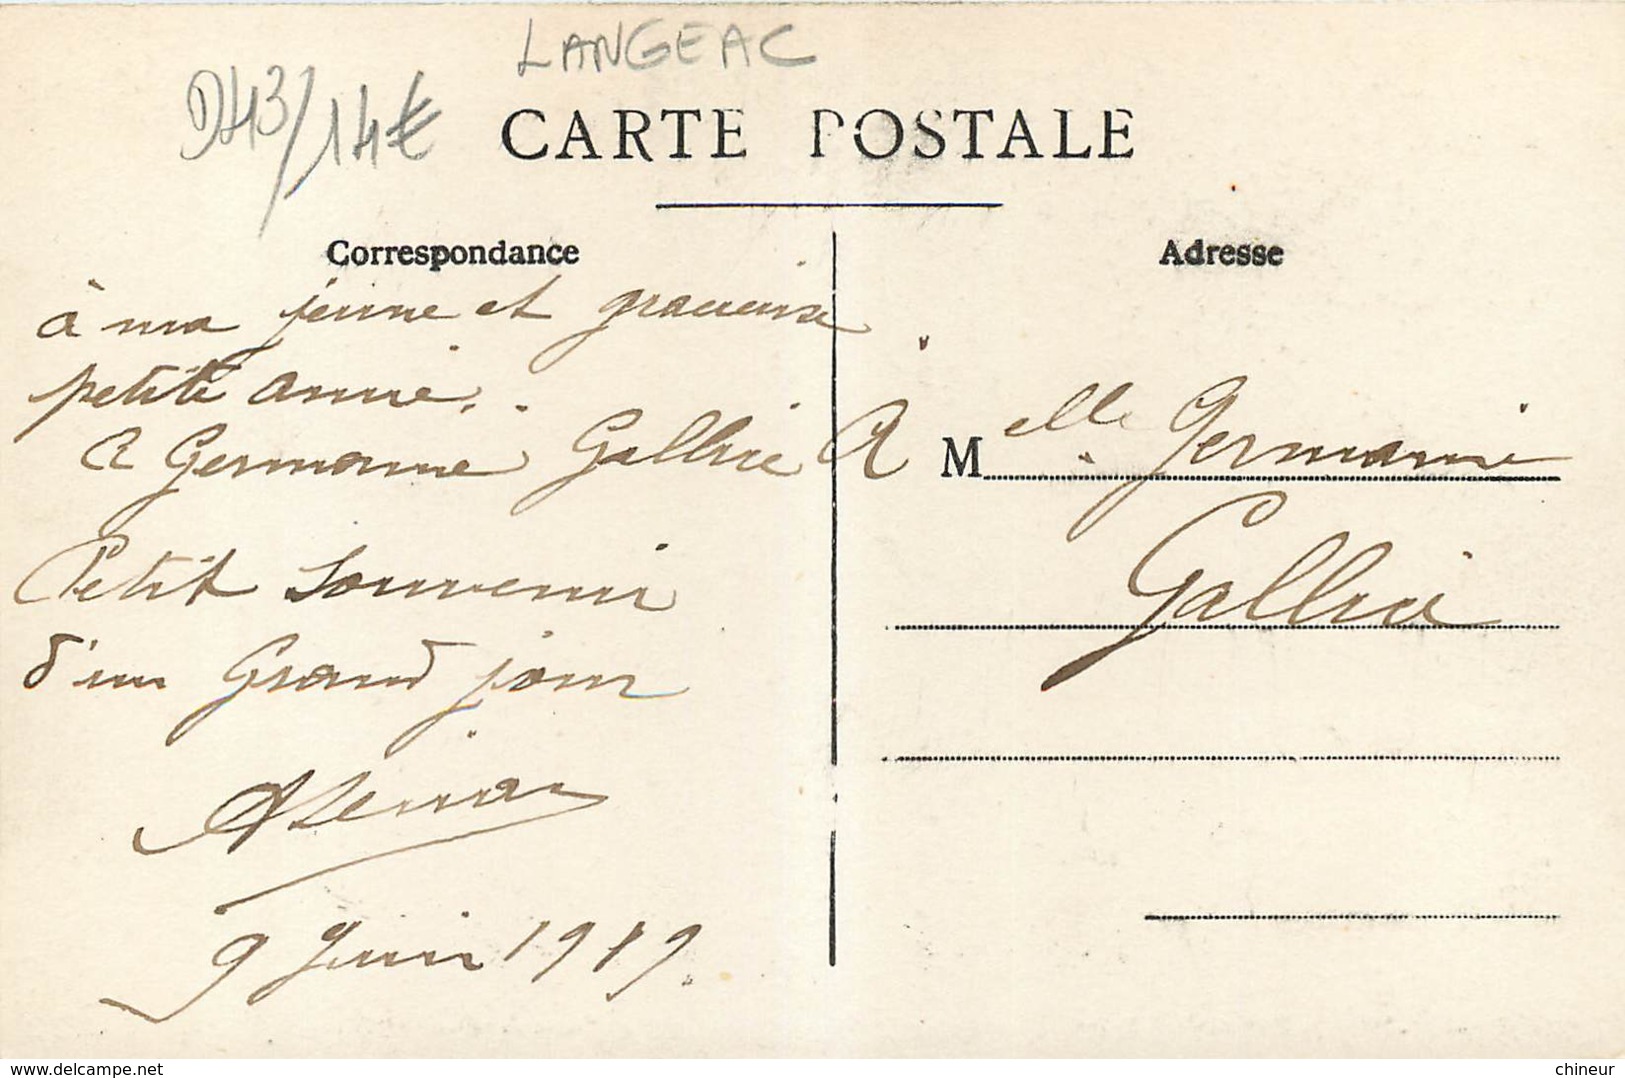 LANGEAC
D43/14€
CARTE POSTALE
Correspondance
Adresse
à ma jeune et gracieuse
petite amie.
à Germaine Gallice
Petit souvenir
d'un Grand jour
9 Juin 1919.
A Melle Germaine
Gallice
chineur